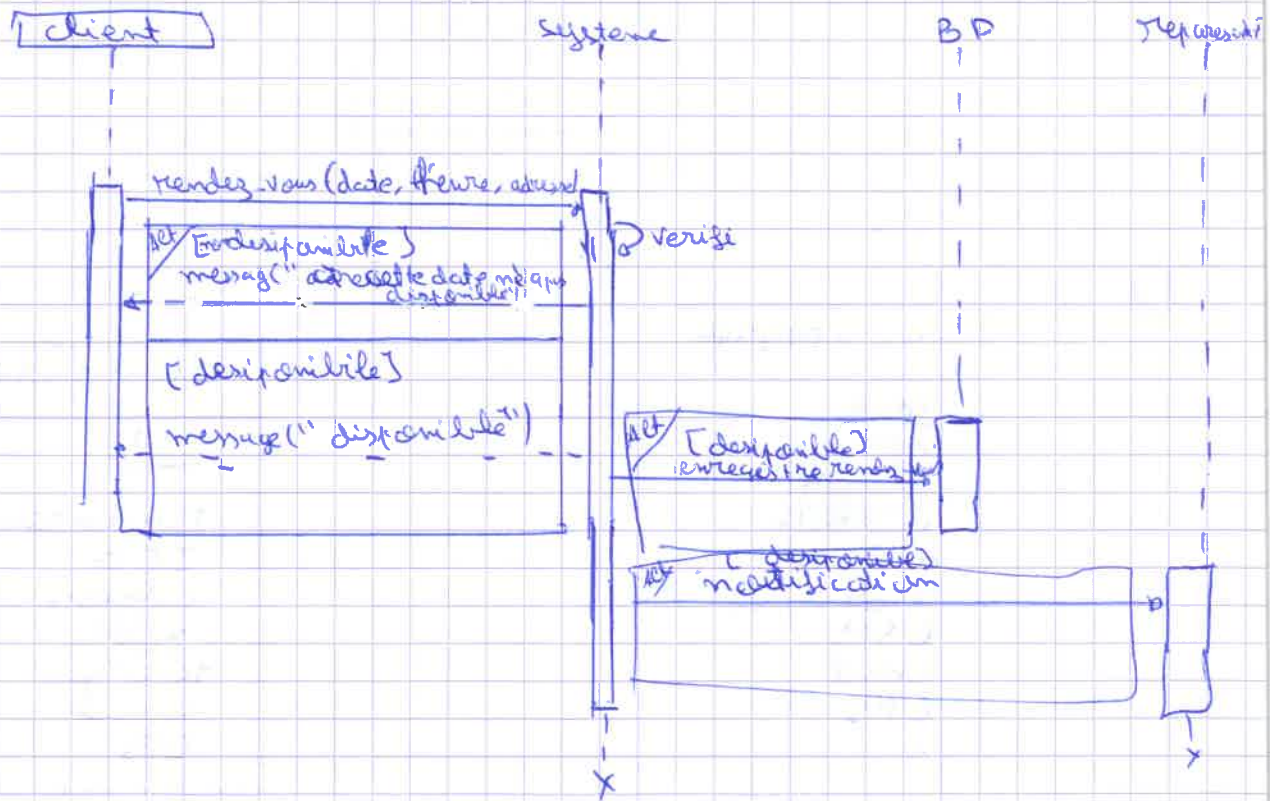 client
systeme
B D
rendez-vous (date, Heure, adresse)
Alt [indesiponibile]
messag(" cette date n'e pas
disponible")
verifi
[desiponibile]
message(" disponible")
Alt [desiponible]
enregistre rendz
Alt [desiponible]
nootification
X
X